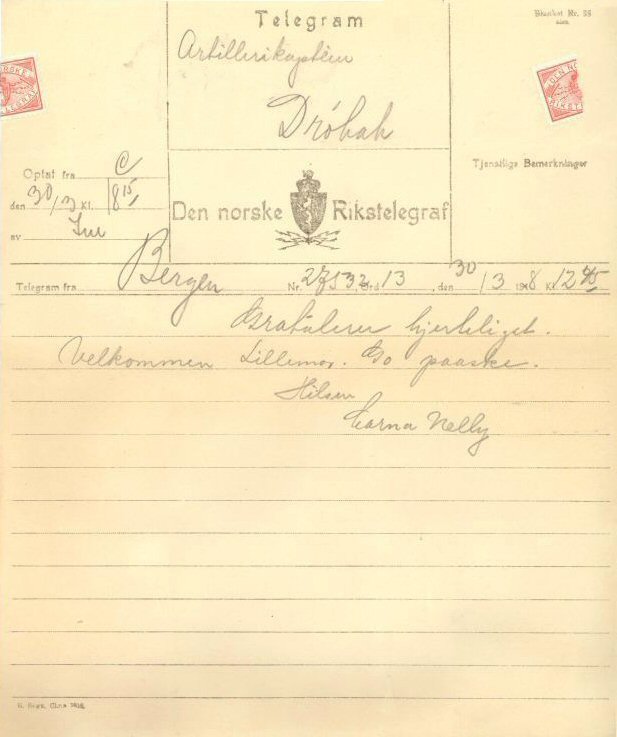 Telegram
Blanket Nr. 28
Artillerikaptein
Drøbak
DEN NO
RIKST
Optat fra C
den 30/3 Kl. 8 15
av
Den norske Rikstelegraf
Tjenstlige Bemerkninger
Telegram fra Bergen Nr. 27532, Ord 13, den 30/3 1918 Kl. 12 45
Gratulerer hjerteligst.
Velkommen Lillemor. Go paaske.
Hilsen
Carna Nelly